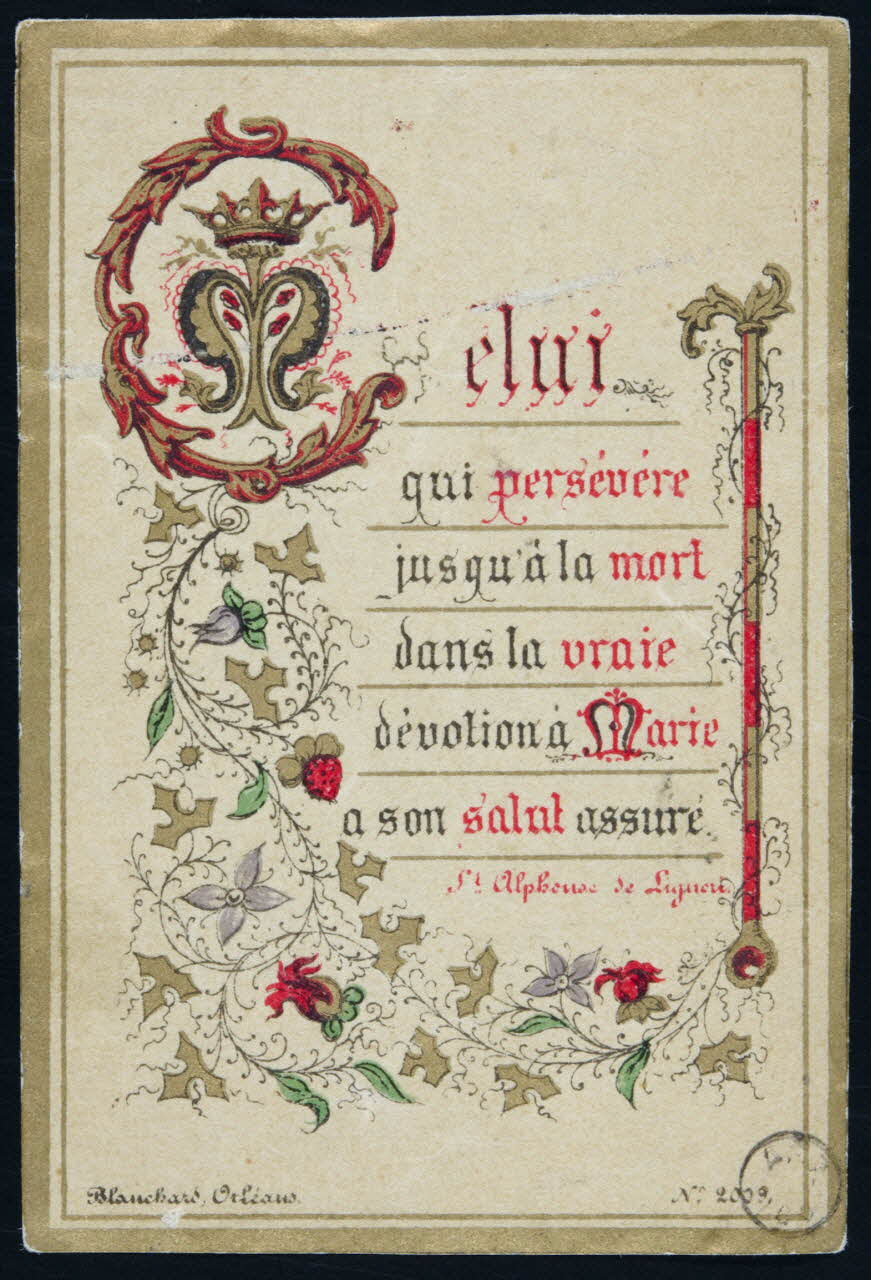 Celui
qui persévére
jusqu'à la mort
dans la vraie
dévotion à Marie
a son salut assuré.
St Alphonse de Liguori.
Blanchard, Orléans.
No 2009.